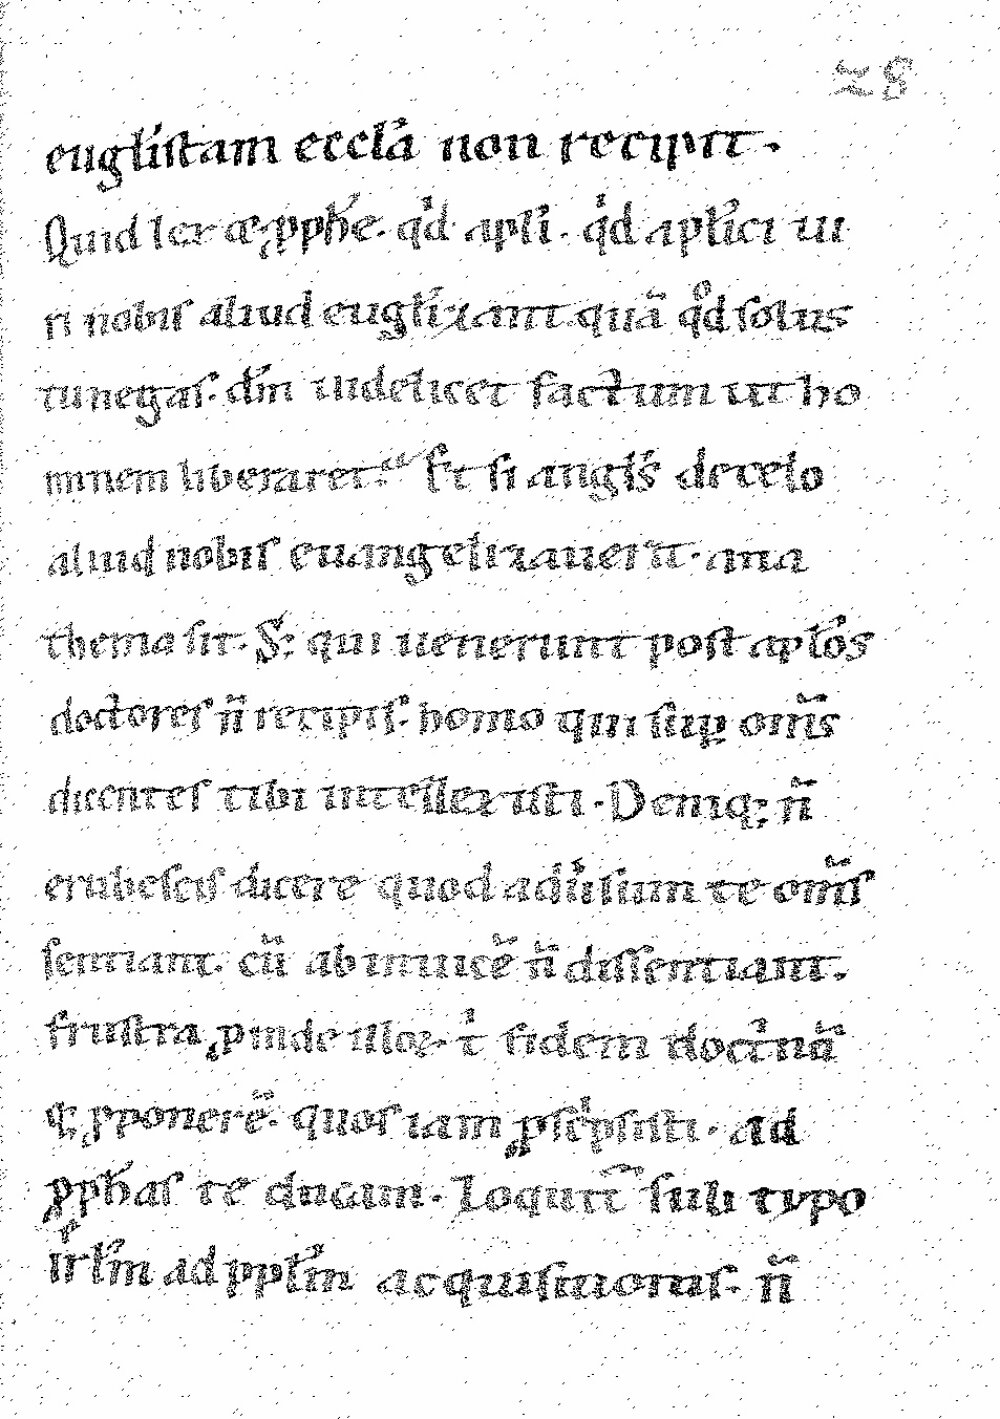 28
euglistam eccla non recipit.
Quid lex & pphe. qd apli. qd aplici ui
ri nobis aliud euglizant quā qd solus
tu negas. dm uidelicet factum ut ho
minem liberaret. Et si angls de celo
aliud nobis euangelizauerit. ana
thema sit. S; qui uenerunt post aplos
doctores ñ recipis. homo qui sup om̄s
dicentes tibi intellexisti. Deniq; ñ
erubescis dicere quod aduisium te om̄s
sentiant. cū ab inuicē ñ dissentiant.
frustra pinde illoꝝ t fidem doctnā
q; pponerē. quos iam pscpsisti. ad
pphas te ducam. Loquit̄ sub typo
irlm ad pplm acquisitionis. ñ